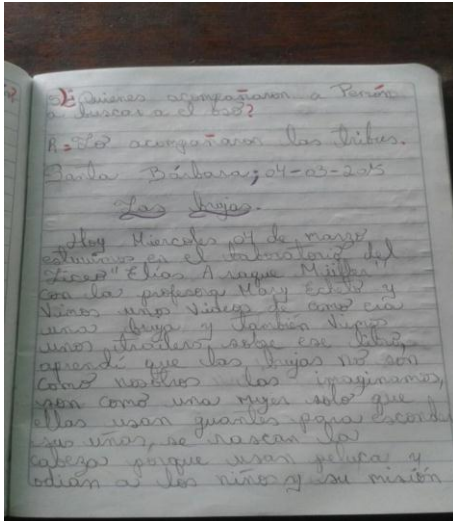 ¿Quienes acompañaron a Perrón
a buscar a el oso?
R= Lo acompañaron las tribus.
Santa Bárbara; 04-03-2015
Las brujas.
Hoy Miercoles 04 de marzo
estuvimos en el laboratorio del
Liceo "Elias Araque Müller"
con la profesora Mary Echeto y
vimos unos videos de como era
una bruja y también vimos
unos trailers sobre ese libro,
aprendí que las brujas no son
como nosotros las imaginamos,
son como una mujer solo que
ellas usan guantes para escond
sus uñas, se rascan la
cabeza porque usan peluca y
odian a los niños y su misión